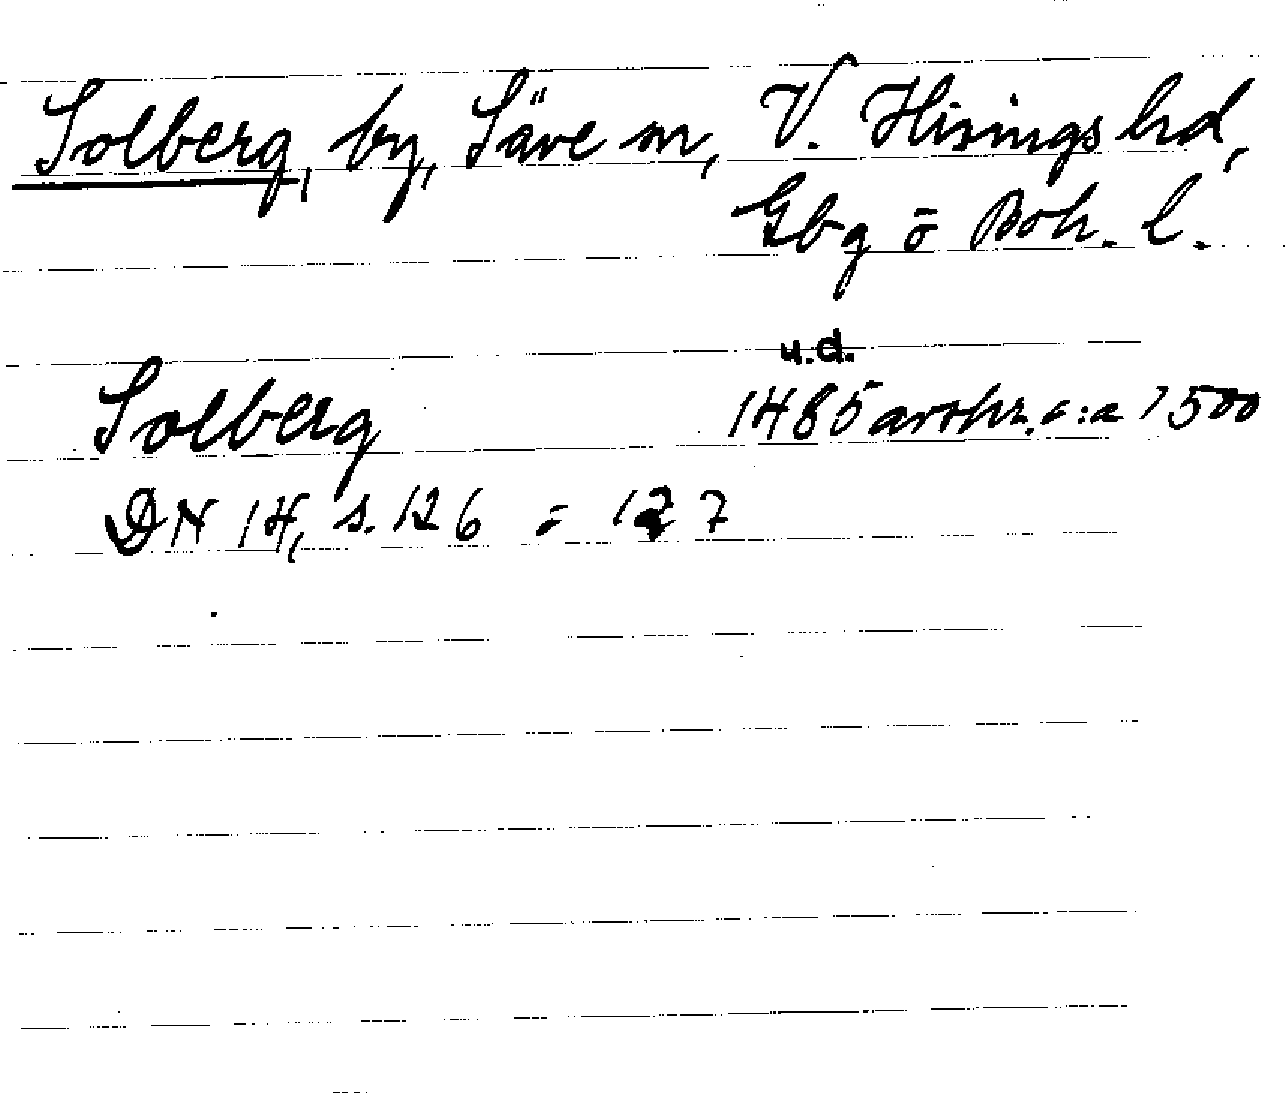 Solberg, by, Säve sn, V. Hisings hd,
Gbg o Boh. l.
u.d.
Solberg 1485 avskr. c:a 1500
DN 14, s. 126 - 127